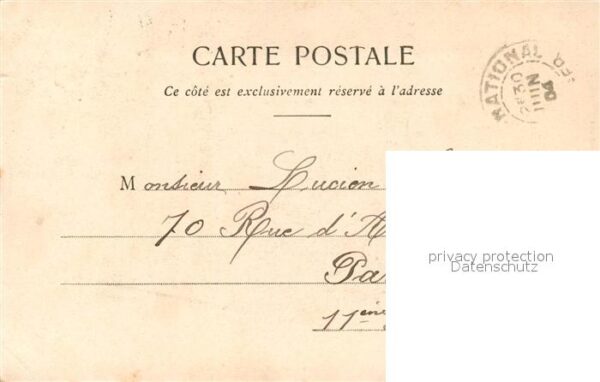 CARTE POSTALE
Ce côté est exclusivement réservé à l'adresse
NATIONAL
30
JUIN
04
Monsieur Lucien
70 Rue d'A
Pa
11ème
privacy protection
Datenschutz